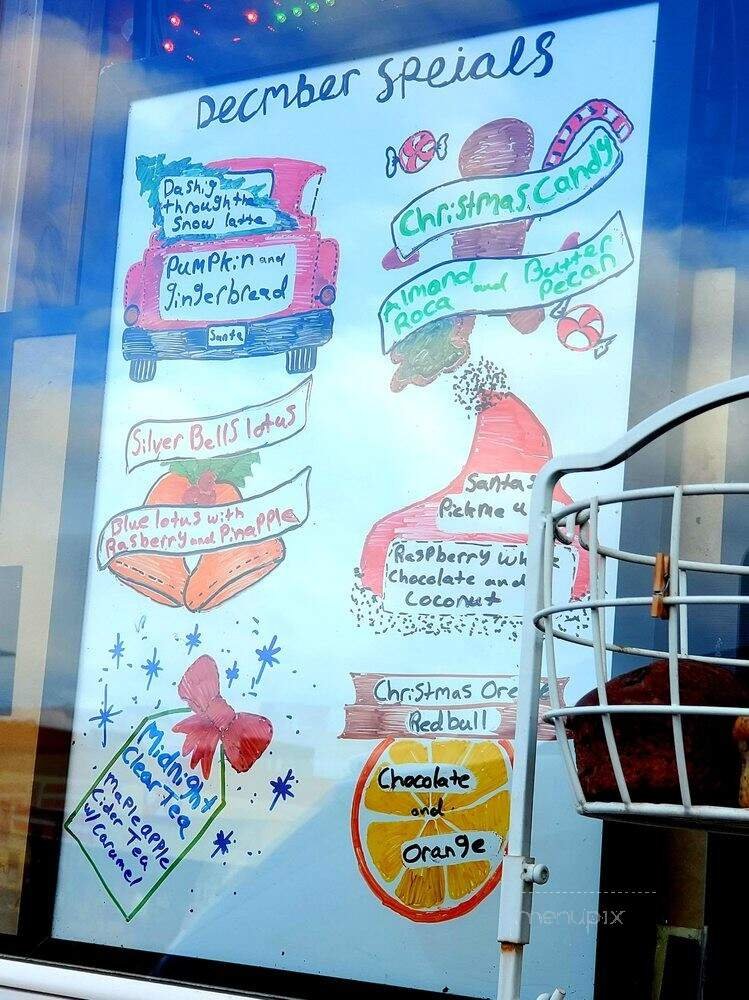 Decmber Speials
Dashig
through the
Snow latte
Pumpkin and
gingerbread
Santa
Christmas Candy
Almond and Butter
Roca Pecan
Silver Bells lotus
Blue lotus with
Rasberry and Pinapple
Santas
Pickme
Raspberry
chocolate and
Coconut
Midnight
Clear Tea
Mapleapple
Cider Tea
w/ Caramel
Christmas
Redbull
Chocolate
and
Orange
menupix